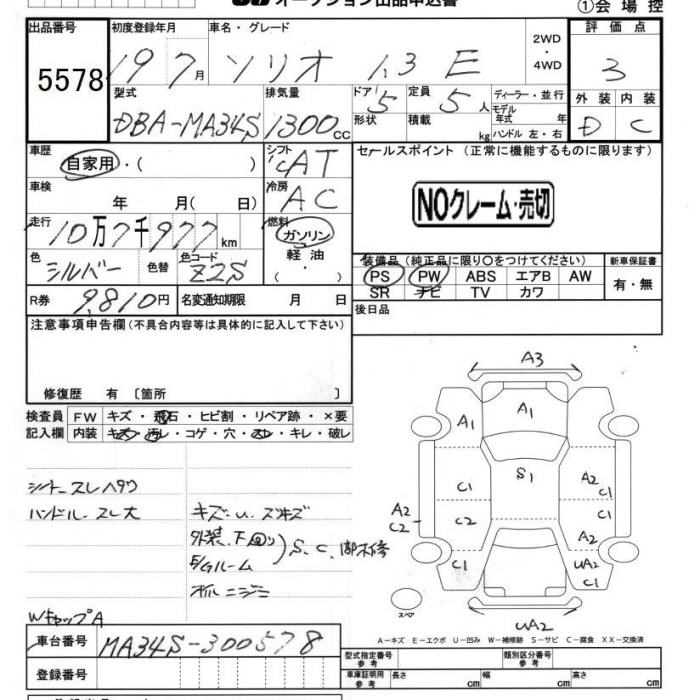 オークション出品申込書
①会場控
出品番号 初度登録年月 車名・グレード 2WD・4WD 評価点
5578 19 7月 ソリオ 1.3 E 3
型式 排気量 ドア形状 定員 ディーラー・並行 外装 内装
DBA-MA34S 1300cc 5 5人 積載 kg モデル年式 年 ハンドル 左・右 D C
車歴 自家用・( ) シフト AT セールスポイント (正常に機能するものに限ります)
車検 年 月( 日) 冷房 AC NOクレーム・売切
走行 10万7千977km 燃料 ガソリン・軽油・( )
色 シルバー 色替 色コード Z2S
装備品 (純正品に限り○をつけてください) 新車保証書
PS PW ABS エアB AW 有・無
SR ナビ TV カワ
R券 9,810円 名変通知期限 月 日 後日品
注意事項申告欄(不具合内容等は具体的に記入して下さい)
修復歴 有 〔箇所
検査員 FW キズ・飛石・ヒビ割・リペア跡・×要
記入欄 内装 キズ・汚レ・コゲ・穴・スレ・キレ・破レ
シート スレ ヘタリ
ハンドル スレ大 キズ・U
外装、下回リ
E/Gルーム S、C
オイルニジミ
WキャップA
A3
A1 A1
S1
C1 A2 C1
A2 C2 C2 C1
A2
C1 UA2 C1
スペア
UA2
A-キズ E-エクボ U-凹み W-補修跡 S-サビ C-腐食 XX-交換済
車台番号 MA34S-300578
登録番号
型式指定番号 参考 類別区分番号 参考
車庫証明用 参考 長さ cm 幅 cm 高さ cm